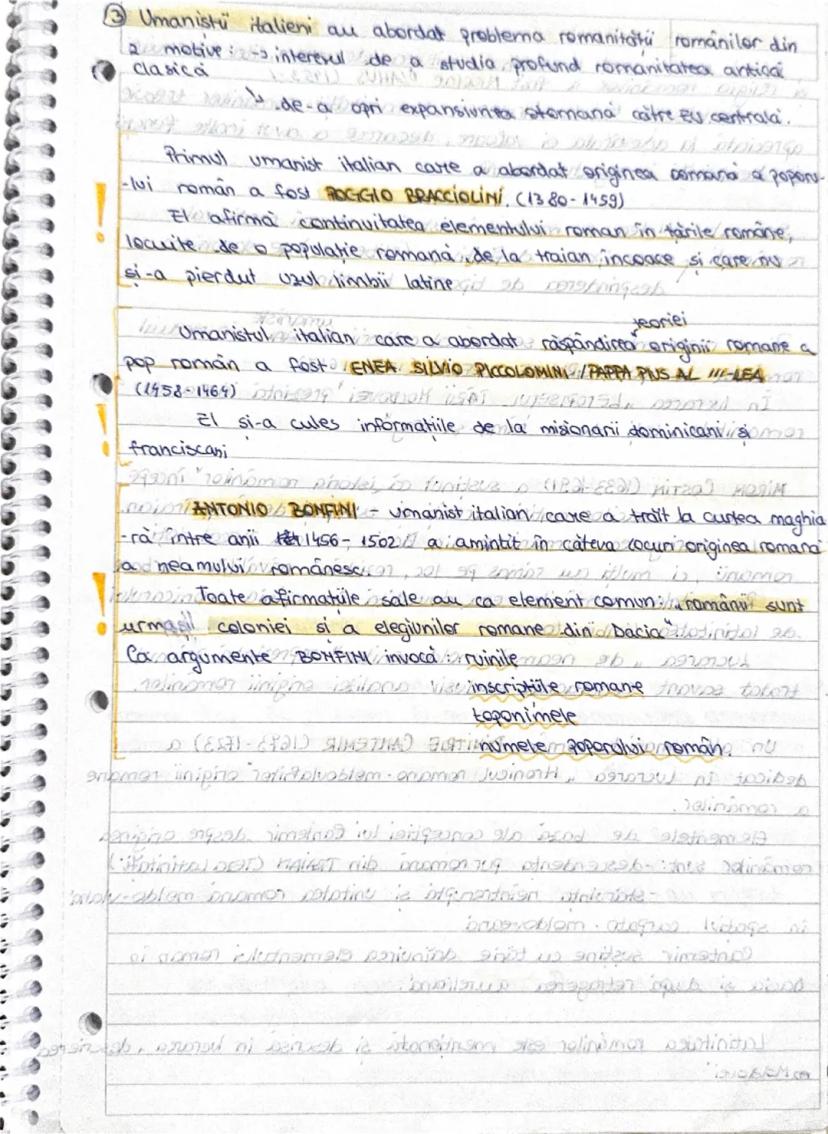 ③ Umaniștii italieni au abordat problema romanității românilor din
2 motive: → interesul de a studia profund romanitatea antică
clasică
↳ de-a opri expansiunea otomană către EU centrală.
Primul umanist italian care a abordat originea romană a poporu-
-lui român a fost POGGIO BRACCIOLINI. (1380-1459)
! El afirmă continuitatea elementului roman în țările române,
locuite de o populație romană, de la traian încoace și care nu
și-a pierdut uzul limbii latine
teoriei
Umanistul italian care a abordat răspândirea originii romane a
pop român a fost ENEA SILVIO PICCOLOMINI /PAPPA PIUS AL III-LEA
(1458-1464)
! El și-a cules informațiile de la misionarii dominicani și
franciscani
ANTONIO BONFINI - umanist italian care a trăit la curtea maghia
-ră între anii 1456-1502 a amintit în câteva locuri originea romană
a neamului românesc.
! Toate afirmațiile sale au ca element comun: „românii sunt
urmașii coloniei și a elegiunilor romane din Dacia"
Ca argumente BONFINI invocă: ruinile
inscripțiile romane
toponimele
numele poporului român.